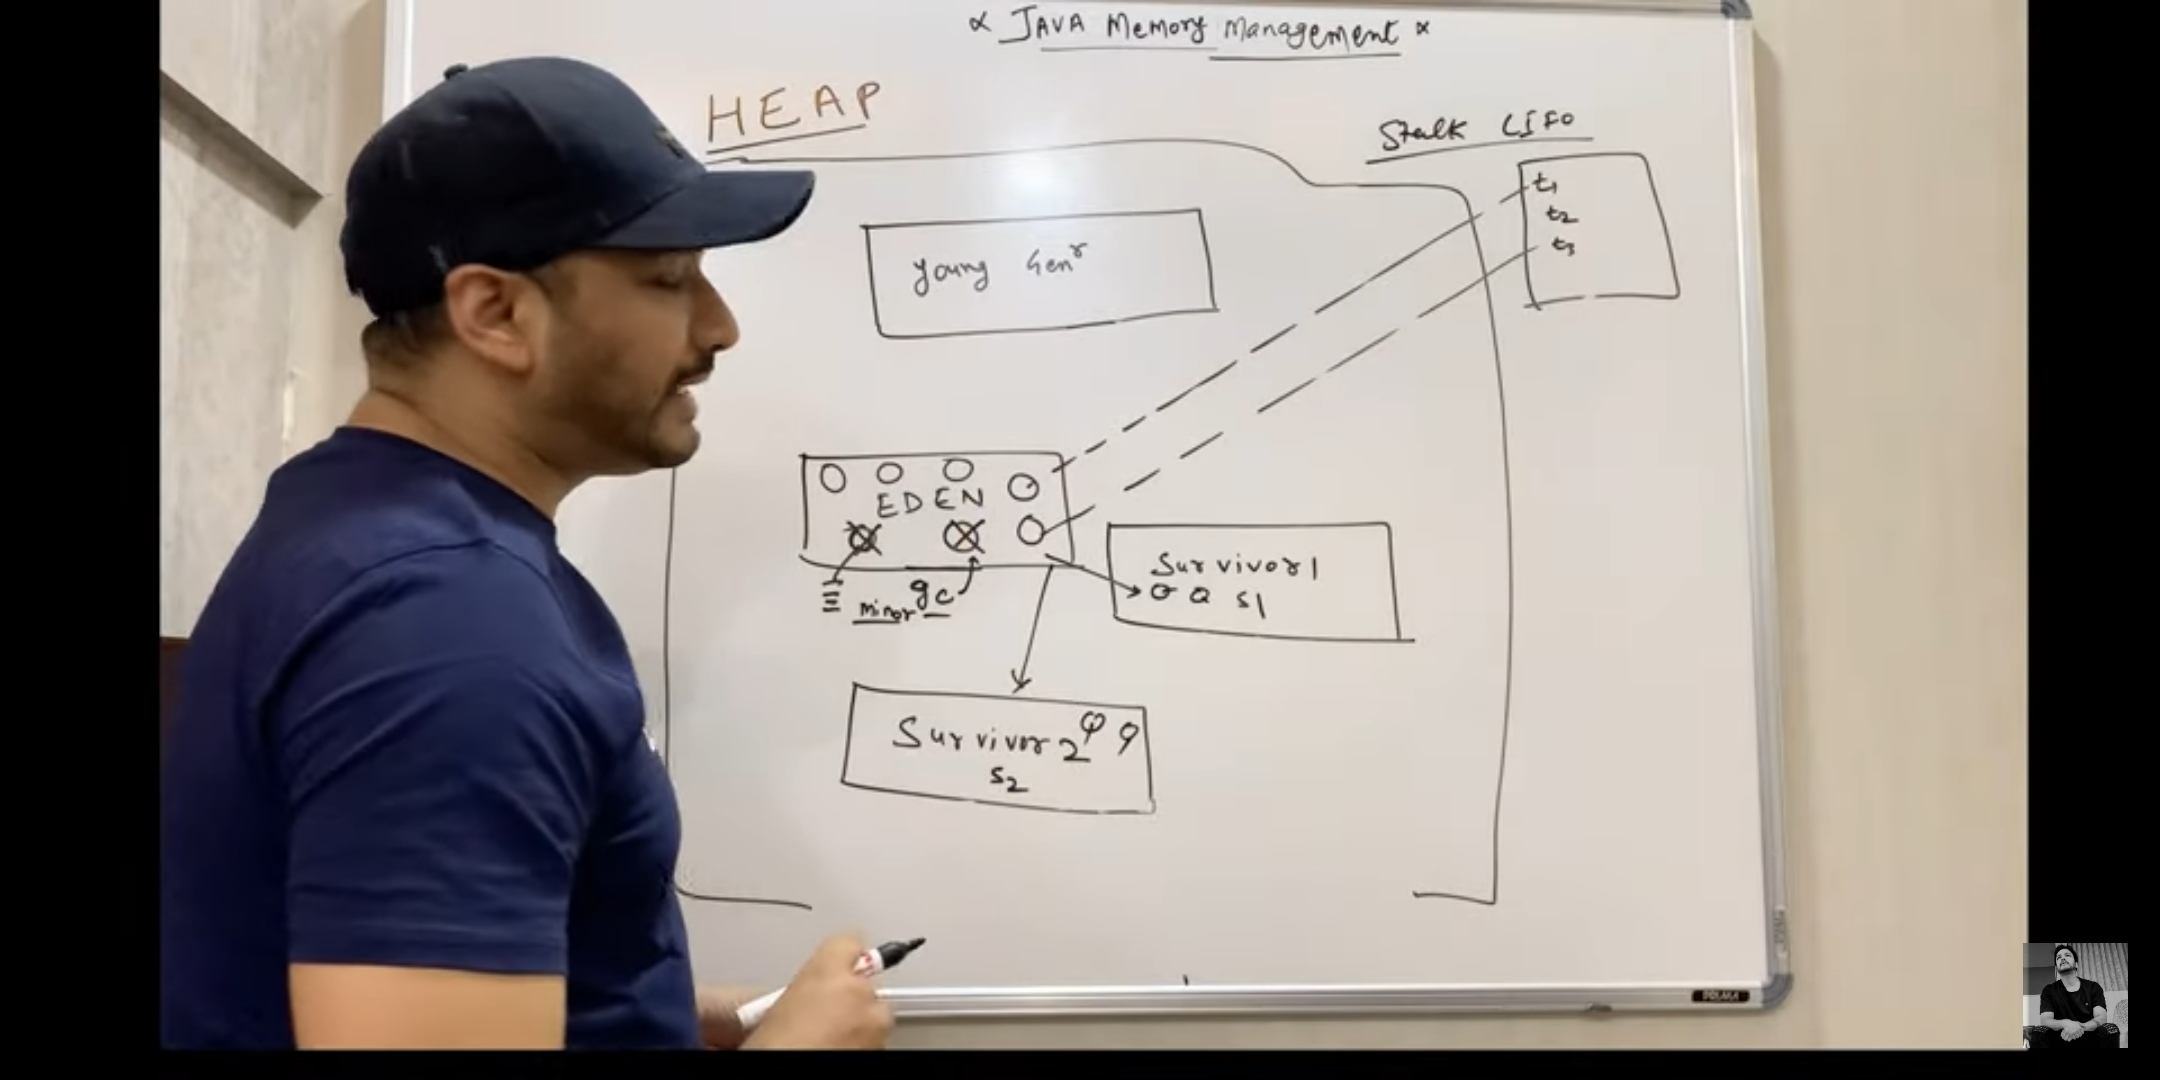 ∝ JAVA Memory Management ∝
HEAP
Stalk LIFO
t1
t2
t3
Young Genr
EDEN
minor gc
Survivor 1
S1
Survivor 2
S2
PRIMA